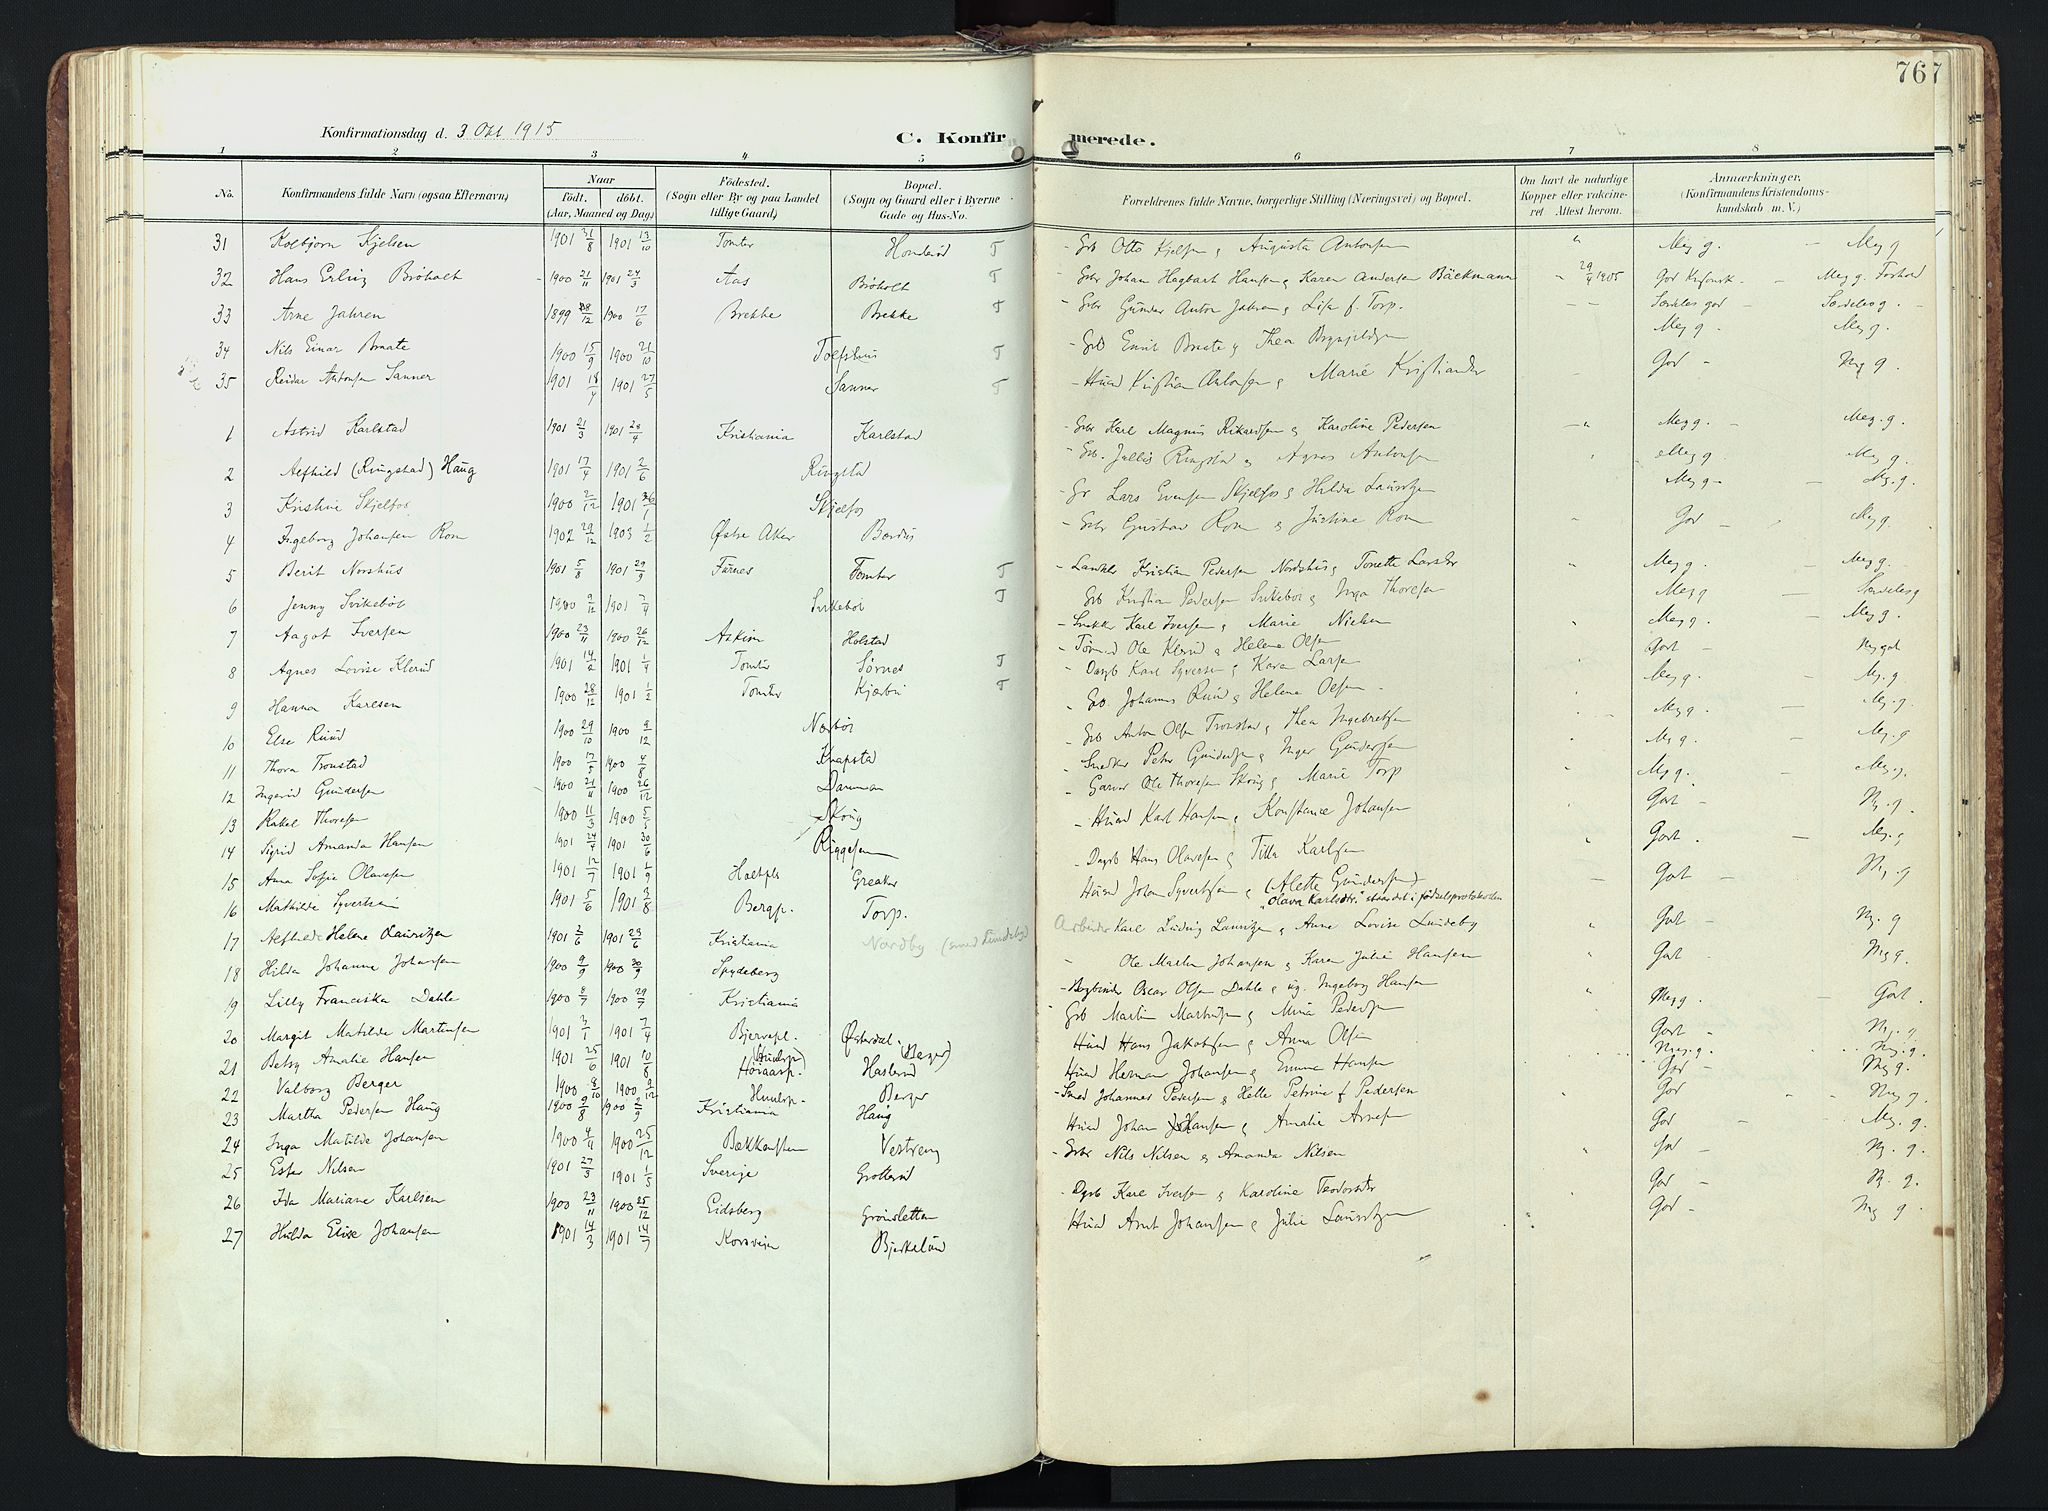 767
Konfirmationsdag d. 3 Okt 1915
C. Konfirmerede.
1 2 3 4 5 6 7 8
No. Konfirmandens fulde Navn (ogsaa Efternavn) Naar født. døbt. (Aar, Maaned og Dag) Fødested. (Sogn eller By og paa Landet tillige Gaard) Bopæl. (Sogn og Gaard eller i Byerne Gade og Hus-No. Forældrenes fulde Navne, borgerlige Stilling (Næringsvei) og Bopæl. Om havt de naturlige Kopper eller vakcineret Attest herom. Anmærkninger. (Konfirmandens Kristendomskundskab m. V.)
31 Kolbjørn Kjelsen 1901 31/8 1901 13/10 Tomter T - Grb Otto Kjelsen & Augusta Antonsen " Meg g. - Meg g
32 Hans Erling Brøholt 1900 21/11 1901 24/3 Aas Brøholt T - Grbr Johan Hagbart Hansen & Karen Andersen Bäckmann " 29/4 1905 God - Meg g. Forhold
33 Arne Jahren 1899 28/12 1900 17/6 Brekke Brekke T - Grbr Gunder Anton Jahren & Lise f. Torp. - - Særdeles god - Særdeles g.
34 Nils Einar Braate 1900 15/9 1900 21/10 Toefshus T - Grb Emil Braate & Thea Meg g. Meg g.
35 Reidar Antonsen Sanner 1901 18/4 1901 27/5 Sanner T - Husmd Kristian Antonsen & Marie Kristiansdr - God - Mg g.
1 Astrid Karlstad 1901 21/3 1901 28/4 Kristiania Karlstad Grbr Karl Magnus Rikardsen & Karoline Pedersen - " Meg g. - Meg. g.
2 Alfhild (Ringstad) Haug 1901 17/4 1901 2/6 Ringsta - Grb. Julius Ringstad & Agnes Antonsen Meg g. - Meg g.
3 Kristine Skjelfos 1900 2/12 1901 26/1 Skjelfos - Gr Lars Evensen Skjelfos & Hilda Lauritzen Meg g - Mg. g.
4 Ingeborg Johansen Rom 1902 29/12 1903 1/2 Østre Aker - Grbr Gustav Rom & Justine Rom " God - Meg g.
5 Berit Norshus 1901 5/8 1901 29/9 Furnes Tomter T - Kristian Pedersen Nordshus & Tonette Larsdtr " Meg g. - Meg g.
6 Jenny Svikebøl 1900 9/12 1901 7/4 Svikebøl T Grb Kristian Pedersen Svikebøl & Inga Thoresen Meg g - Særdeles g
7 Aagot Iversen 1900 23/11 1900 26/12 Askim Holstad - Snekker Karl Iversen & Marie Nielsen Meg g. - Meg g.
8 Agnes Lovise Klerud 1901 14/2 1901 1/4 Tomter Sørnes T - Tømmd Ole Klerud & Helene Olsen Godt - Mg godt
9 Hanna Karlsen 1900 28/12 1901 1/2 Tomter T - Dagsb Karl Syversen & Karen Larsen Meg g. - Mg. g.
10 Else Ruud 1900 29/10 1900 9/12 Nærbøl - Gb. Johannes Ruud & Helene Olsen - Meg g. - Mg. g.
11 Thora Tronstad 1900 17/5 1900 4/8 Knapsta Grb Anton Olsen Tronstad & Thea Ingebretsen Mg g. - Mg. g
12 Ingerid Gundersen 1900 21/11 1900 26/12 Damman - Snedker Peter Gundersen & Inger Gundersen Mg g. - Mg. g.
13 Rakel Thoresen 1900 11/3 1900 5/5 Skoug - Garver Ole Thoresen Skoug & Marie Torp Godt - Mg. g.
14 Sigrid Amanda Hansen 1901 24/4 1901 30/6 Riggesen - Husmd Karl Hansen & Konstance Johansen " Godt. - Mg. g
15 Anna Sofie Olavesen 1901 12/7 1901 1/9 Greaker - Dagsb Hans Olavesen & Tilla Karlsen Godt - Mg. g
16 Mathilde Syvertsen 1901 5/6 1901 3/8 Bergp. Torp. Husmd Johan Syvertsen & (Alette Gundersen) "Olava Karlsdtr." staar det i fødselsprotokollen
17 Helene Lauritzen 1901 2/6 1901 29/6 Kristiania Nordby (smed Lundeby) Arbeider Karl Ludvig Lauritzen & Anne Lovise Lundeby " Godt - Mg. g
18 Hilda Johanne Johansen 1900 9/9 1900 30/9 Spydeberg - Ole Martin Johansen & Karen Julie Hansen " Godt - Mg g.
19 Lilly Franciska Dahle 1900 8/7 1900 29/7 Kristiania - Bogbinder Oscar Olsen Dahle & ug. Ingeborg Hansen " Meg g. - Godt.
20 Margit Matilde Martinsen 1901 3/1 1901 7/4 Østerdal. Grb Martin Martinsen & Mina Pedersen Godt - Mg. g
21 Betsy Amalie Hansen 1901 25/6 1901 10/8 Haslerud (Berger) Husmd Hans Jakobsen & Anna Olsen Meg. g. Mg. g.
22 Valborg Berger 1900 8/10 1900 9/12 Berger Husmd Herman Johansen & Emma Hansen God - Mg g.
23 Martha Pedersen Haug 1900 9/8 1900 2/9 Kristiania Haug - Smed Johannes Pedersen & Helle Petrine f Pedersen " God - Mg g.
24 Inga Matilde Johansen 1900 4/11 1900 25/12 Vestreng Husmd Johan Johansen & Amalie God - Mg. g.
25 Ester Nilsen 1901 27/3 1901 1/5 Sverige Grotterød - Grbr Nils Nilsen & Amanda Nilsen " God - Mg. g.
26 Ida Mariane Karlsen 1900 23/11 1900 25/12 Eidsberg Grønsletten - Dgsb Karl Iversen & Karoline Teodorsdtr God - M. g.
27 Hulda Elise Johansen 1901 14/3 1901 14/7 Korsveien Bjerkelund Husmd Arnt Johansen & Julie Lauritzen God - Mg g.